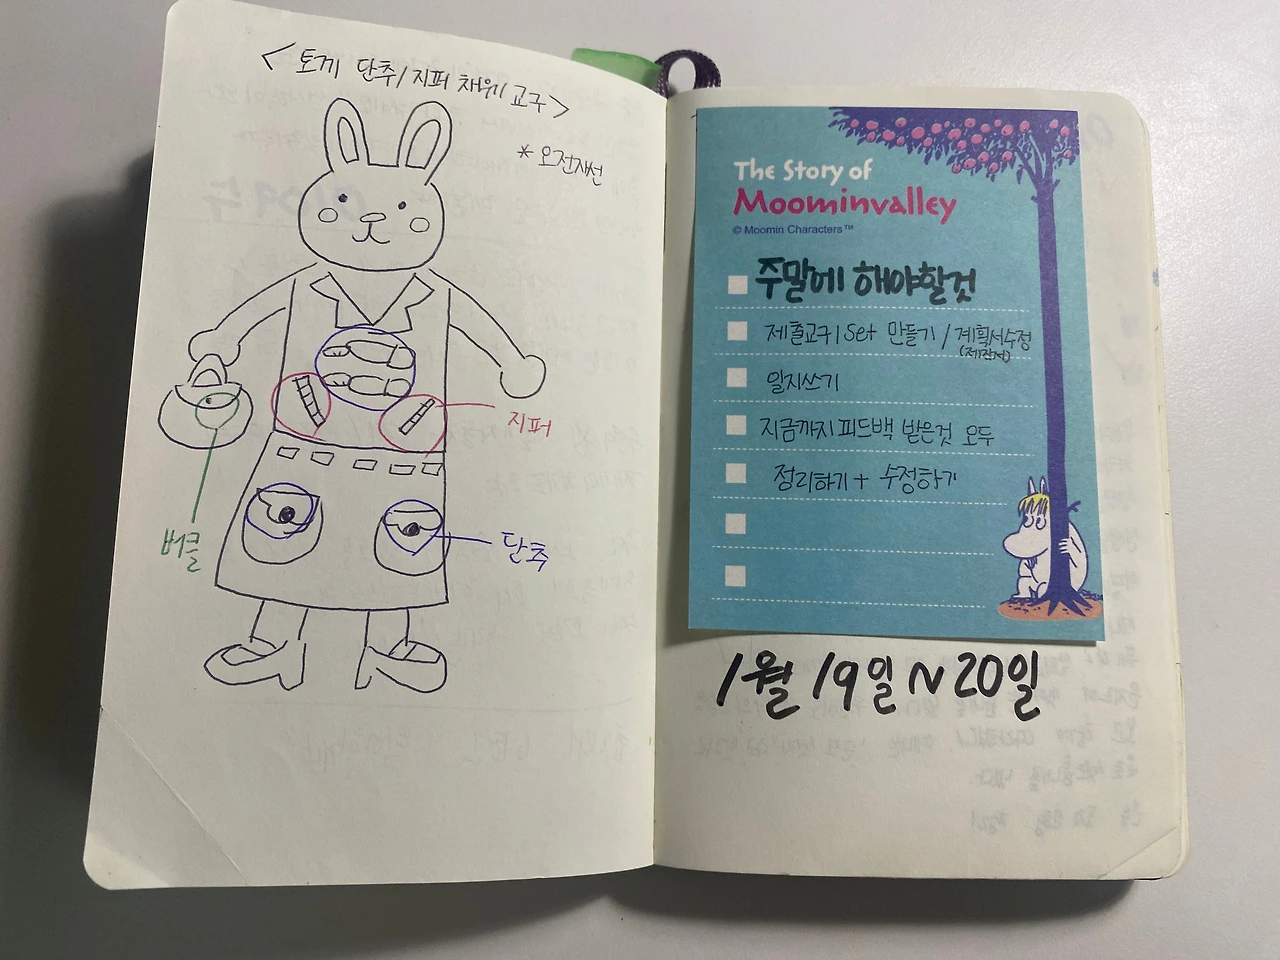 < 토끼 단추/지퍼 채우기 교구 >
* 오전재선
지퍼
버클
단추
The Story of
Moominvalley
© Moomin Characters™
주말에 해야할것
제출교구 1set 만들기 / 계획서수정
일지쓰기
지금까지 피드백 받은것 모두
정리하기 + 수정하기
1월 19일 ~ 20일